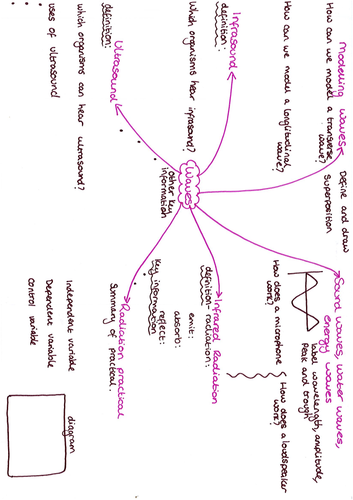 Modelling waves
How can we model a transverse
wave?
How can we model a longitudinal
wave?
Define and draw
Superposition
Infrasound
definition:
Which organisms hear infrasound?
Ultrasound
definition:
which organisms can hear ultrasound?
uses of ultrasound
Waves
other key
information
Sound waves, water waves,
energy waves
label wavelength, amplitude,
Peak and trough
How does a microphone
work?
How does a loudspeaker
work?
Infrared Radiation
definition radiation:
emit:
absorb:
reflect:
Key information
Radiation practical
Summary of practical.
Independent variable
Dependent variable
control variable
diagram